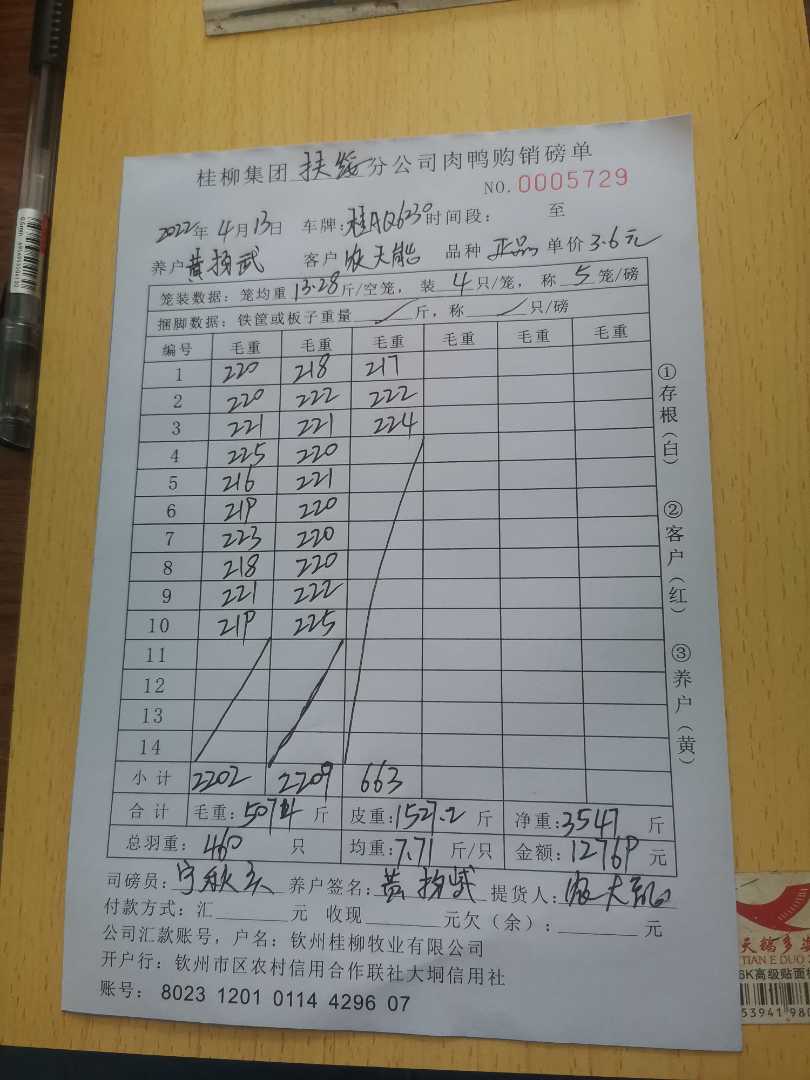 桂柳集团 扶绥 分公司肉鸭购销磅单
NO.0005729
2022年 4月 13日 车牌:桂AQ6230 时间段: 至
养户 黄扬武 客户 农天能 品种 正品 单价 3.6元
笼装数据:笼均重 13.28 斤/空笼, 装 4 只/笼, 称 5 笼/磅
捆脚数据:铁筐或板子重量 / 斤,称 / 只/磅
编号 毛重 毛重 毛重 毛重 毛重 毛重
1 220 218 217
2 220 222 222
3 221 221 224
4 225 220
5 216 221
6 219 220
7 223 220
8 218 220
9 221 222
10 219 225
11
12
13
14
小计 2202 2209 663
合计 毛重:5074 斤 皮重:1527.2 斤 净重:3547 斤
总羽重:460 只 均重:7.71 斤/只 金额:12769 元
司磅员: 养户签名:黄扬武 提货人:农天能
付款方式:汇 元 收现 元欠(余): 元
公司汇款账号,户名:钦州桂柳牧业有限公司
开户行:钦州市区农村信用合作联社大垌信用社
账号: 8023 1201 0114 4296 07
①存根(白) ②客户(红) ③养户(黄)
天鹅多姿
TIAN E DUO
6K高级贴面
53941980
0.5mm